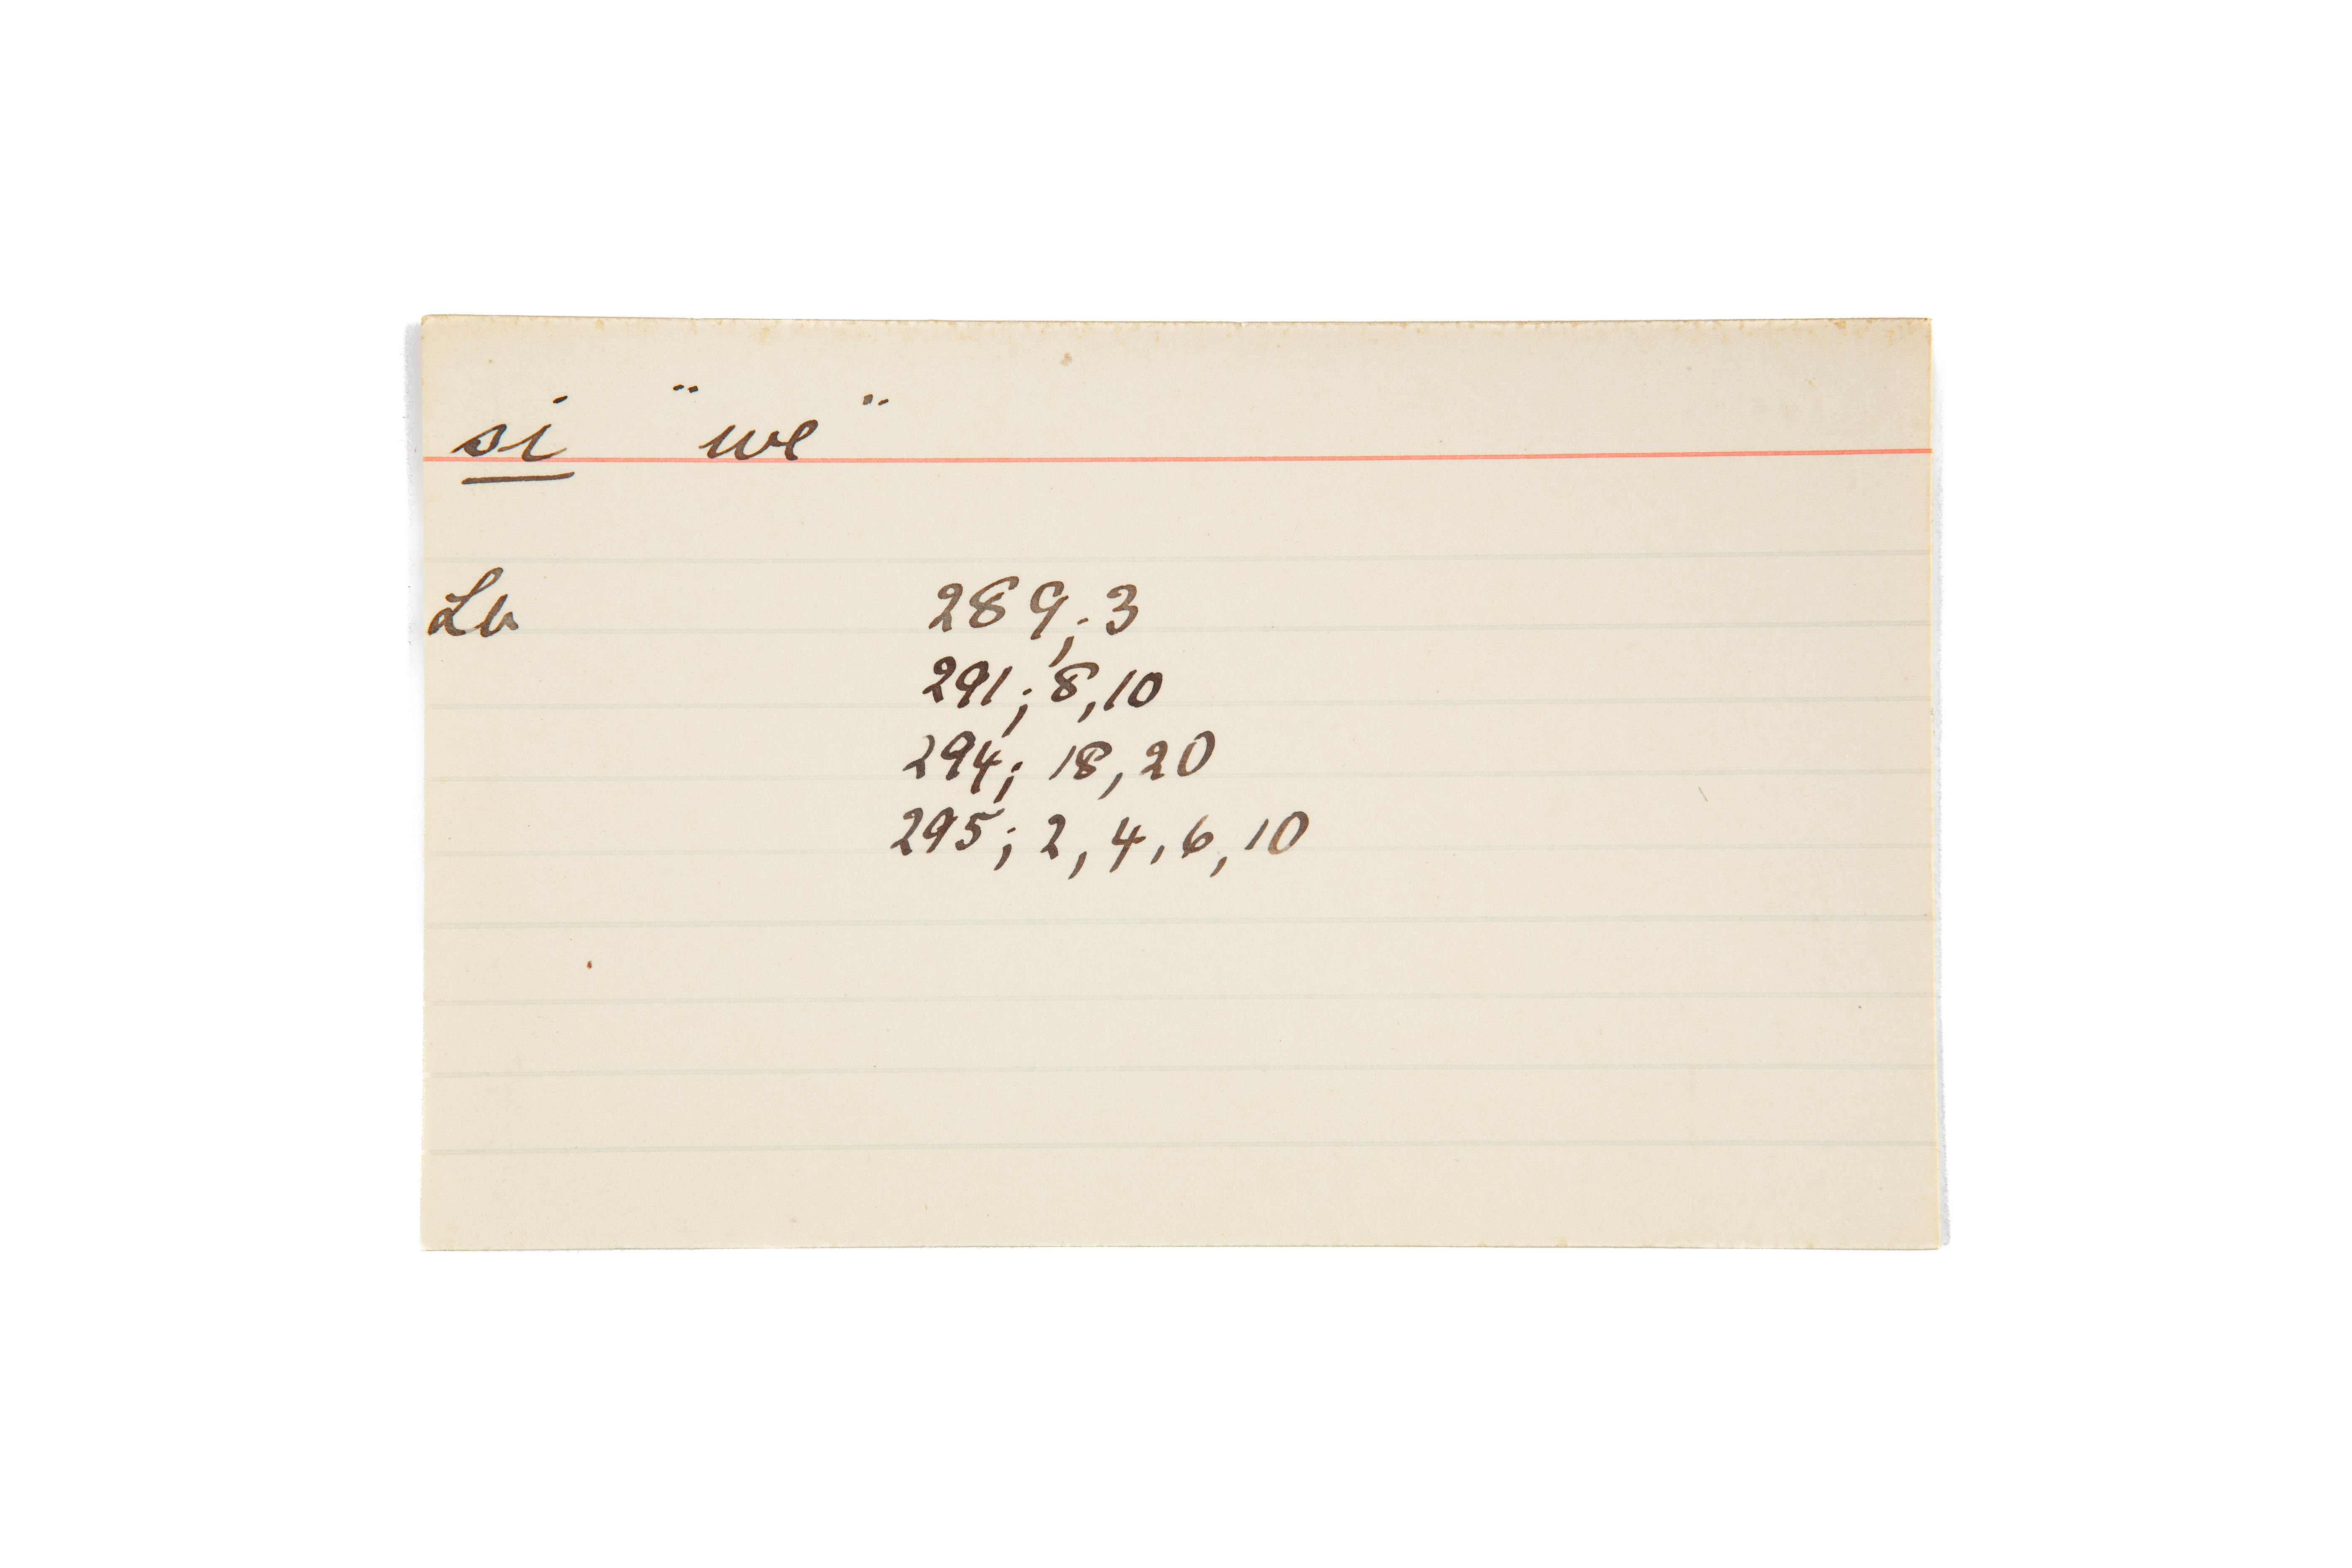 si "we"
Lb 289; 3
291; 8, 10
294; 18, 20
295; 2, 4, 6, 10